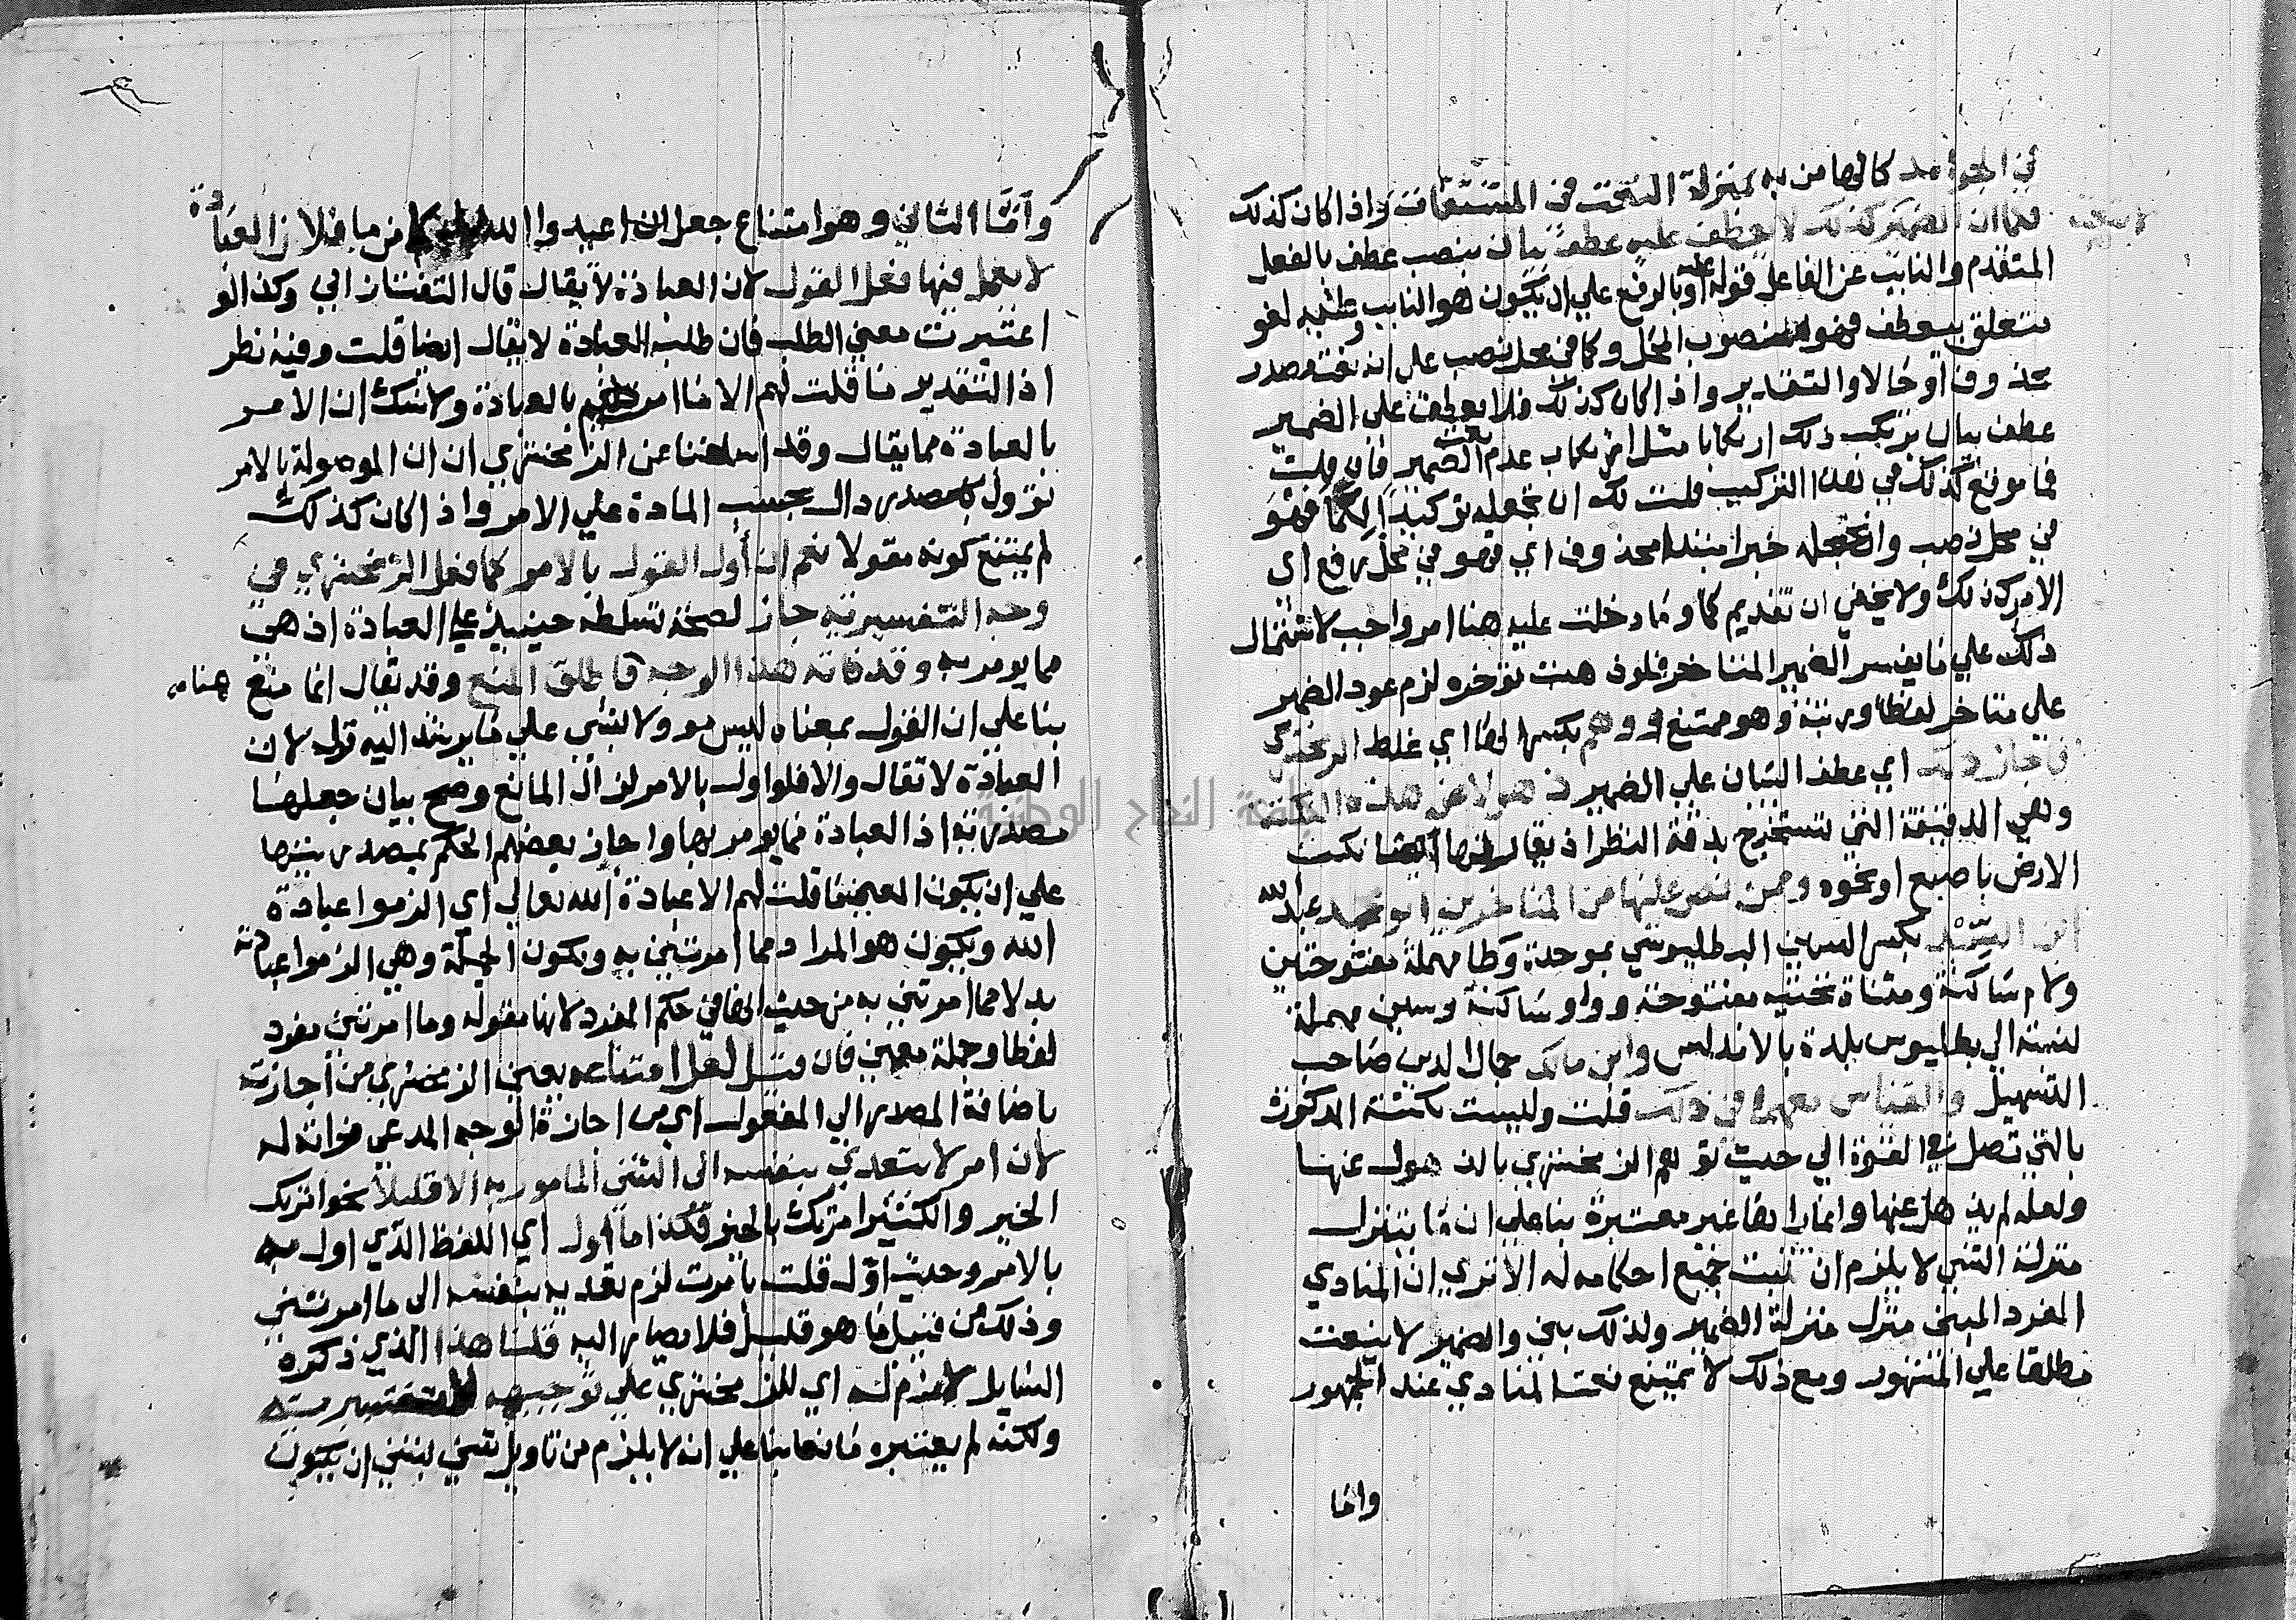 في الجوامد كائنا من به بمنزلة النعت في المشتقات واذا كان كذلك
فكما ان الضمير كذلك لا يعطف عليه عطف بيان بنصب عطف بالفعل
لا ينعت
المتقدم والنايب عن الفاعل قوله عليه او بالرفع علي ان يكون هو النايب وعليه لغو
متعلق بيعطف فهو منصوب المحل وكما في محل نصب علي انه نعت مصدر
محذوف او حالا والتقدير واذا كان كذلك فلا يعطف على الضمير
عطف بيان يرتكب ذلك ارتكابا مثل ارتكاب عدم نعت الضمير فان قلت
فما موقع كذلك في هذا التركيب قلت لك ان تجعله توكيدا لكما فهو
في محل نصب وان تجعله خبرا مبتدا محذوف اي فهو في محل رفع اي
الامر كذلك ولا يخفي ان تقديم كما وما دخلت عليه هنا امر واجب لاشتمال
ذلك علي ما يفسر الضمير المتاخر فلو ذهبت توخره لزم عود الضمير
علي متاخر لفظا ورتبة وهو ممتنع ووهم بكسر الها اي غلط الزمخشري
فاجاز ذلك اي عطف البيان علي الضمير ذهولا عن هذه النكتة
وهي الدقيقة التي تستخرج بدقة النظر اذ يقارنها نكت
الارض باصبع او نحوه وممن نص عليها من المتاخرين ابو محمد عبد الله
ابن السيد بكسر السين البطليوسي بموحدة وطا مهملة مفتوحتين
ولام ساكنة ومثناة تحتيه مفتوحة وواو ساكنة وسين مهملة
نسبة الي بطليوس بلدة بالاندلس وابن مالك جمال الدين صاحب
التسهيل والقياس معهما في ذلك قلت وليست نكتة المذكورة
بالتي تصل في القوة الي حيث توهم الزمخشري بالذهول عنها
ولعله لم يذهل عنها وانما راها غير معتبرة بنا علي ان ما يتنزل
منزلة الشي لا يلزم ان تثبت جميع احكامه له الا تري ان المنادي
المفرد المبني منزل منزلة الضمير ولذلك بني والضمير لا ينعت
مطلقا علي المشهور ومع ذلك لا يمتنع نعت المنادي عند الجمهور
واما
وامَّا الثاني وهو امتناع جعل ان اعبدوا الله من ما فلان العبادة
لا يعمل فيها فعل القول لان العبادة لا يقال قال التفتازاني وكذا لو
اعتبرت معني الطلب فان طلب العبادة لا يقال ايضا قلت وفيه نظر
اذ التقدير ما قلت لهم الا ما امرتهم بالعبادة ولا شك ان الامر
بالعبادة مما يقال وقد اسلفنا عن الزمخشري ان ان الموصولة بالامر
توول بمصدر دال بحسب المادة علي الامر واذا كان كذلك
لم يمتنع كونه مقولا نعم ان أول القول بالامر كما فعل الزمخشري في
وجه التفسيرية جاز لصحة تسلطه حينيذ علي العبادة اذ هي
مما يومر به وقد فاته هذا الوجه فاطلق المنع وقد يقال انما منع هنا
بنا علي ان القول بمعناه ليس هو ولا ينبني علي ما يرشد اليه قوله لان
العبادة لا تقال والا فلو اول بالامر لزال المانع وصح بيان جعلها
مصدرية اذ العبادة مما يومر بها واجاز بعضهم الحكم بمصدريتها
علي ان يكون المعني ما قلت لهم الا عبادة الله تعالي اي الزموا عبادة
الله ويكون هو المراد مما امرتني به ويكون الجملة وهي الزموا عبادته
بدلا مما امرتني به من حيث انها في حكم المفرد لانها مقوله وما امرتني مفرد
لفظا وجملة معني فان قيل لعل امتناعه يعني الزمخشري من اجازته
باضافة المصدر الي المفعول اي من اجازة الوجه المدعي فواته له
لان امر لا يتعدي بنفسه الى الشي المامور به الا قليلا نحو امرتك
الخير والكثير امرتك بالخير فكذا ما اول اي اللفظ الذي اول به
بالامر وحيث اوّل قلت بامرت لزم تعديه بنفسه الى ما امرتني
وذلك من قبيل ما هو قليل فلا يصار اليه قلنا هذا الذي ذكره
السايل لازم له اي للزمخشري علي توجيهه التفسيرية
ولكنه لم يعتبره مانعا بنا علي انه لا يلزم من تاويل شي بشي ان يكون
جامعة النجاح الوطنية